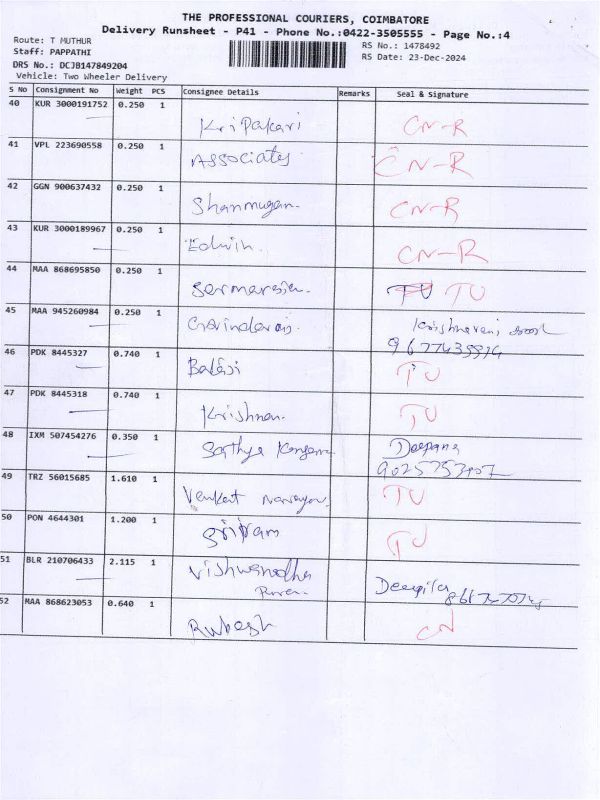 THE PROFESSIONAL COURIERS, COIMBATORE
Delivery Runsheet - P41 - Phone No.:0422-3505555 - Page No.:4
Route: T MUTHUR
RS No.: 1478492
Staff: PAPPATHI
RS Date: 23-Dec-2024
DRS No.: DCJB147849204
Vehicle: Two Wheeler Delivery
S No Consignment No Weight PCS Consignee Details Remarks Seal & Signature
40 KUR 3000191752 0.250 1
Kripakari CN-R
41 VPL 223690558 0.250 1
Associates CN-R
42 GGN 900637432 0.250 1
Shanmugan. CN-R
43 KUR 3000189967 0.250 1
Edwin. CN-R
44 MAA 868695850 0.250 1
TU TU
45 MAA 945260984 0.250 1
46 PDK 8445327 0.740 1
Balaji TU
47 PDK 8445318 0.740 1
Krishnan. TU
48 IXM 507454276 0.350 1
Sathya Deepana
49 TRZ 56015685 1.610 1
Venkat TU
50 PON 4644301 1.200 1
Sriram TU
51 BLR 210706433 2.115 1
52 MAA 868623053 0.640 1
CN